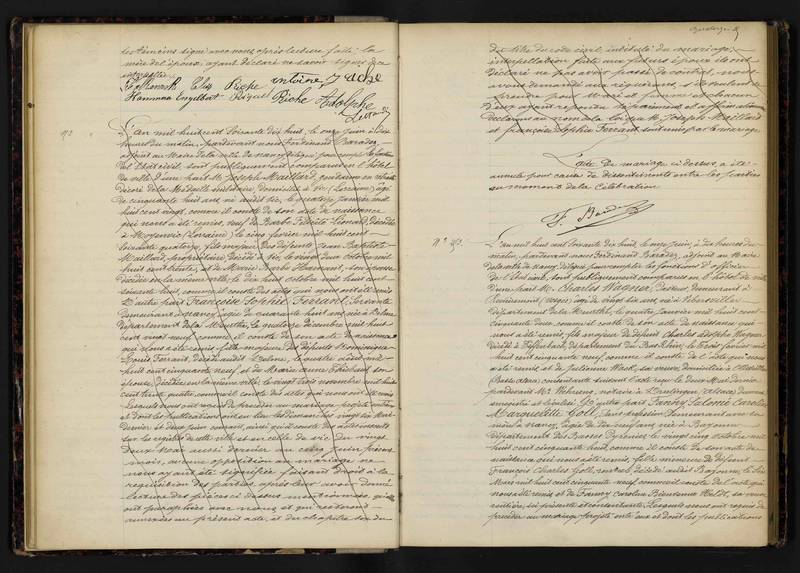 les témoins signé avec nous, après lecture faite; la
mère de l'époux, ayant déclaré ne savoir signer de ce
interpellée.
Elis Riche antoine Jacke
Engelbert Riche Adolphe
L'an mil huit cent soixante dix huit, le onze juin à dix
heures du matin, pardevant nous Ferdinand Baradez,
adjoint au Maire de la ville de nancy délégué pour remplir les fonctions
de l'Etat civil, sont publiquement comparus en l'hôtel
de ville d'une part M. Joseph Maillard, gendarme en retraite
décoré de la Médaille militaire, domicilié à Vic (Lorraine) âgé
de cinquante huit ans, né audit Vic, le quatorze janvier mil
huit cent vingt, comme il conste de son acte de naissance
qui nous a été remis, veuf de Barbe Félicité Léonard décédée
à Moyenvic (Lorraine), le cinq février mil huit cent
soixante quatorze, fils majeur des défunts Jean Baptiste
Maillard, propriétaire décédé à Vic, le vingt deux octobre mil
huit cent trente, et de Marie Barbe Humbert, son épouse
décédée en la même ville, le dix huit octobre mil huit cent
soixante huit, comme il conste des actes qui nous ont été remis
D'autre part Françoise Sophie Ferrant, servante
demeurant à nancy, âgée de quarante huit ans née à Delme
département de la Meurthe, le quatorze décembre mil huit
cent vingt neuf comme il conste de son acte de naissance
qui nous a été remis, fille majeure des défunts Dominique
Louis Ferrant, décédé audit Delme, le quatre août mil
huit cent cinquante neuf et de Marie anne son
épouse, décédée en la même ville, le vingt trois novembre mil huit
cent trente quatre, comme il conste des actes qui nous ont été remis
Lesquels nous ont requis de procéder au mariage projeté entre eux
et dont les publications ont eu lieu les dimanches vingt six Mai
dernier et deux juin courant, ainsi qu'il conste des actes inscrits
sur les registres de cette ville et en celle de Vic du vingt
deux Mai aussi dernier au cinq juin présent
mois, aucune opposition au mariage ne
nous ayant été signifiée faisant droit à la
réquisition des parties, après leur avoir donné
lecture des pièces ci dessus mentionnées, qui
ont paraphées avec nous et qui resteront
annexées au présent acte, et du chapitre six du
dit titre du code civil, intitulé du mariage,
interpellation faite aux futurs époux ils ont
déclaré ne pas avoir passé de contrat, nous
avons demandé aux requérants, s'ils veulent se
prendre pour Mari et femme et chacun
d'eux ayant répondu séparément et affirmativement
déclarons au nom de la loi que M. Joseph Maillard
et françoise Sophie Ferrant sont unis par le mariage
L'acte de mariage ci dessus, a été
annulé pour cause de dissentiments entre les parties
au moment de la célébration
F. Baradez
L'an mil huit cent soixante dix huit, le onze juin, à dix heures du
matin, pardevant nous Ferdinand Baradez, adjoint au Maire
de la ville de nancy délégué pour remplir les fonctions d'officier
de l'Etat civil, sont publiquement comparus en l'hôtel de ville
D'une part M. Charles Wagner, facteur, demeurant à
(vosges) âgé de vingt six ans, né à Abreschviller
Département de la Meurthe, le quatre janvier mil huit cent
cinquante deux comme il conste de son acte de naissance qui
nous a été remis fils majeur du défunt Charles adolphe Wagner
décédé à département du Bas Rhin, le trois janvier mil
huit cent cinquante neuf comme il conste de l'acte qui nous
a été remis et de Julienne sa veuve domiciliée à
(Basse alsace) consentante suivant l'acte reçu le deux Mai dernier
pardevant Me notaire à (alsace) dûment
enregistré et légalisé. Et d'autre part Fanny Salomé Caroline
Marguerite Goll, sans profession demeurant avec sa
mère à nancy, âgée de dix neuf ans née à Bayonne
Département des Basses Pyrénées le vingt cinq octobre mil
huit cent cinquante huit comme il conste de son acte de
naissance qui nous a été remis, fille mineure du défunt
François Charles Goll, décédé audit Bayonne, le six
Mars mil huit cent cinquante neuf comme il conste de l'acte qui
nous a été remis et de Fanny Caroline Bientenue sa veuve
rentière, ici présente et consentante. Lesquels nous ont requis de
procéder au mariage projeté entr'eux et dont les publications